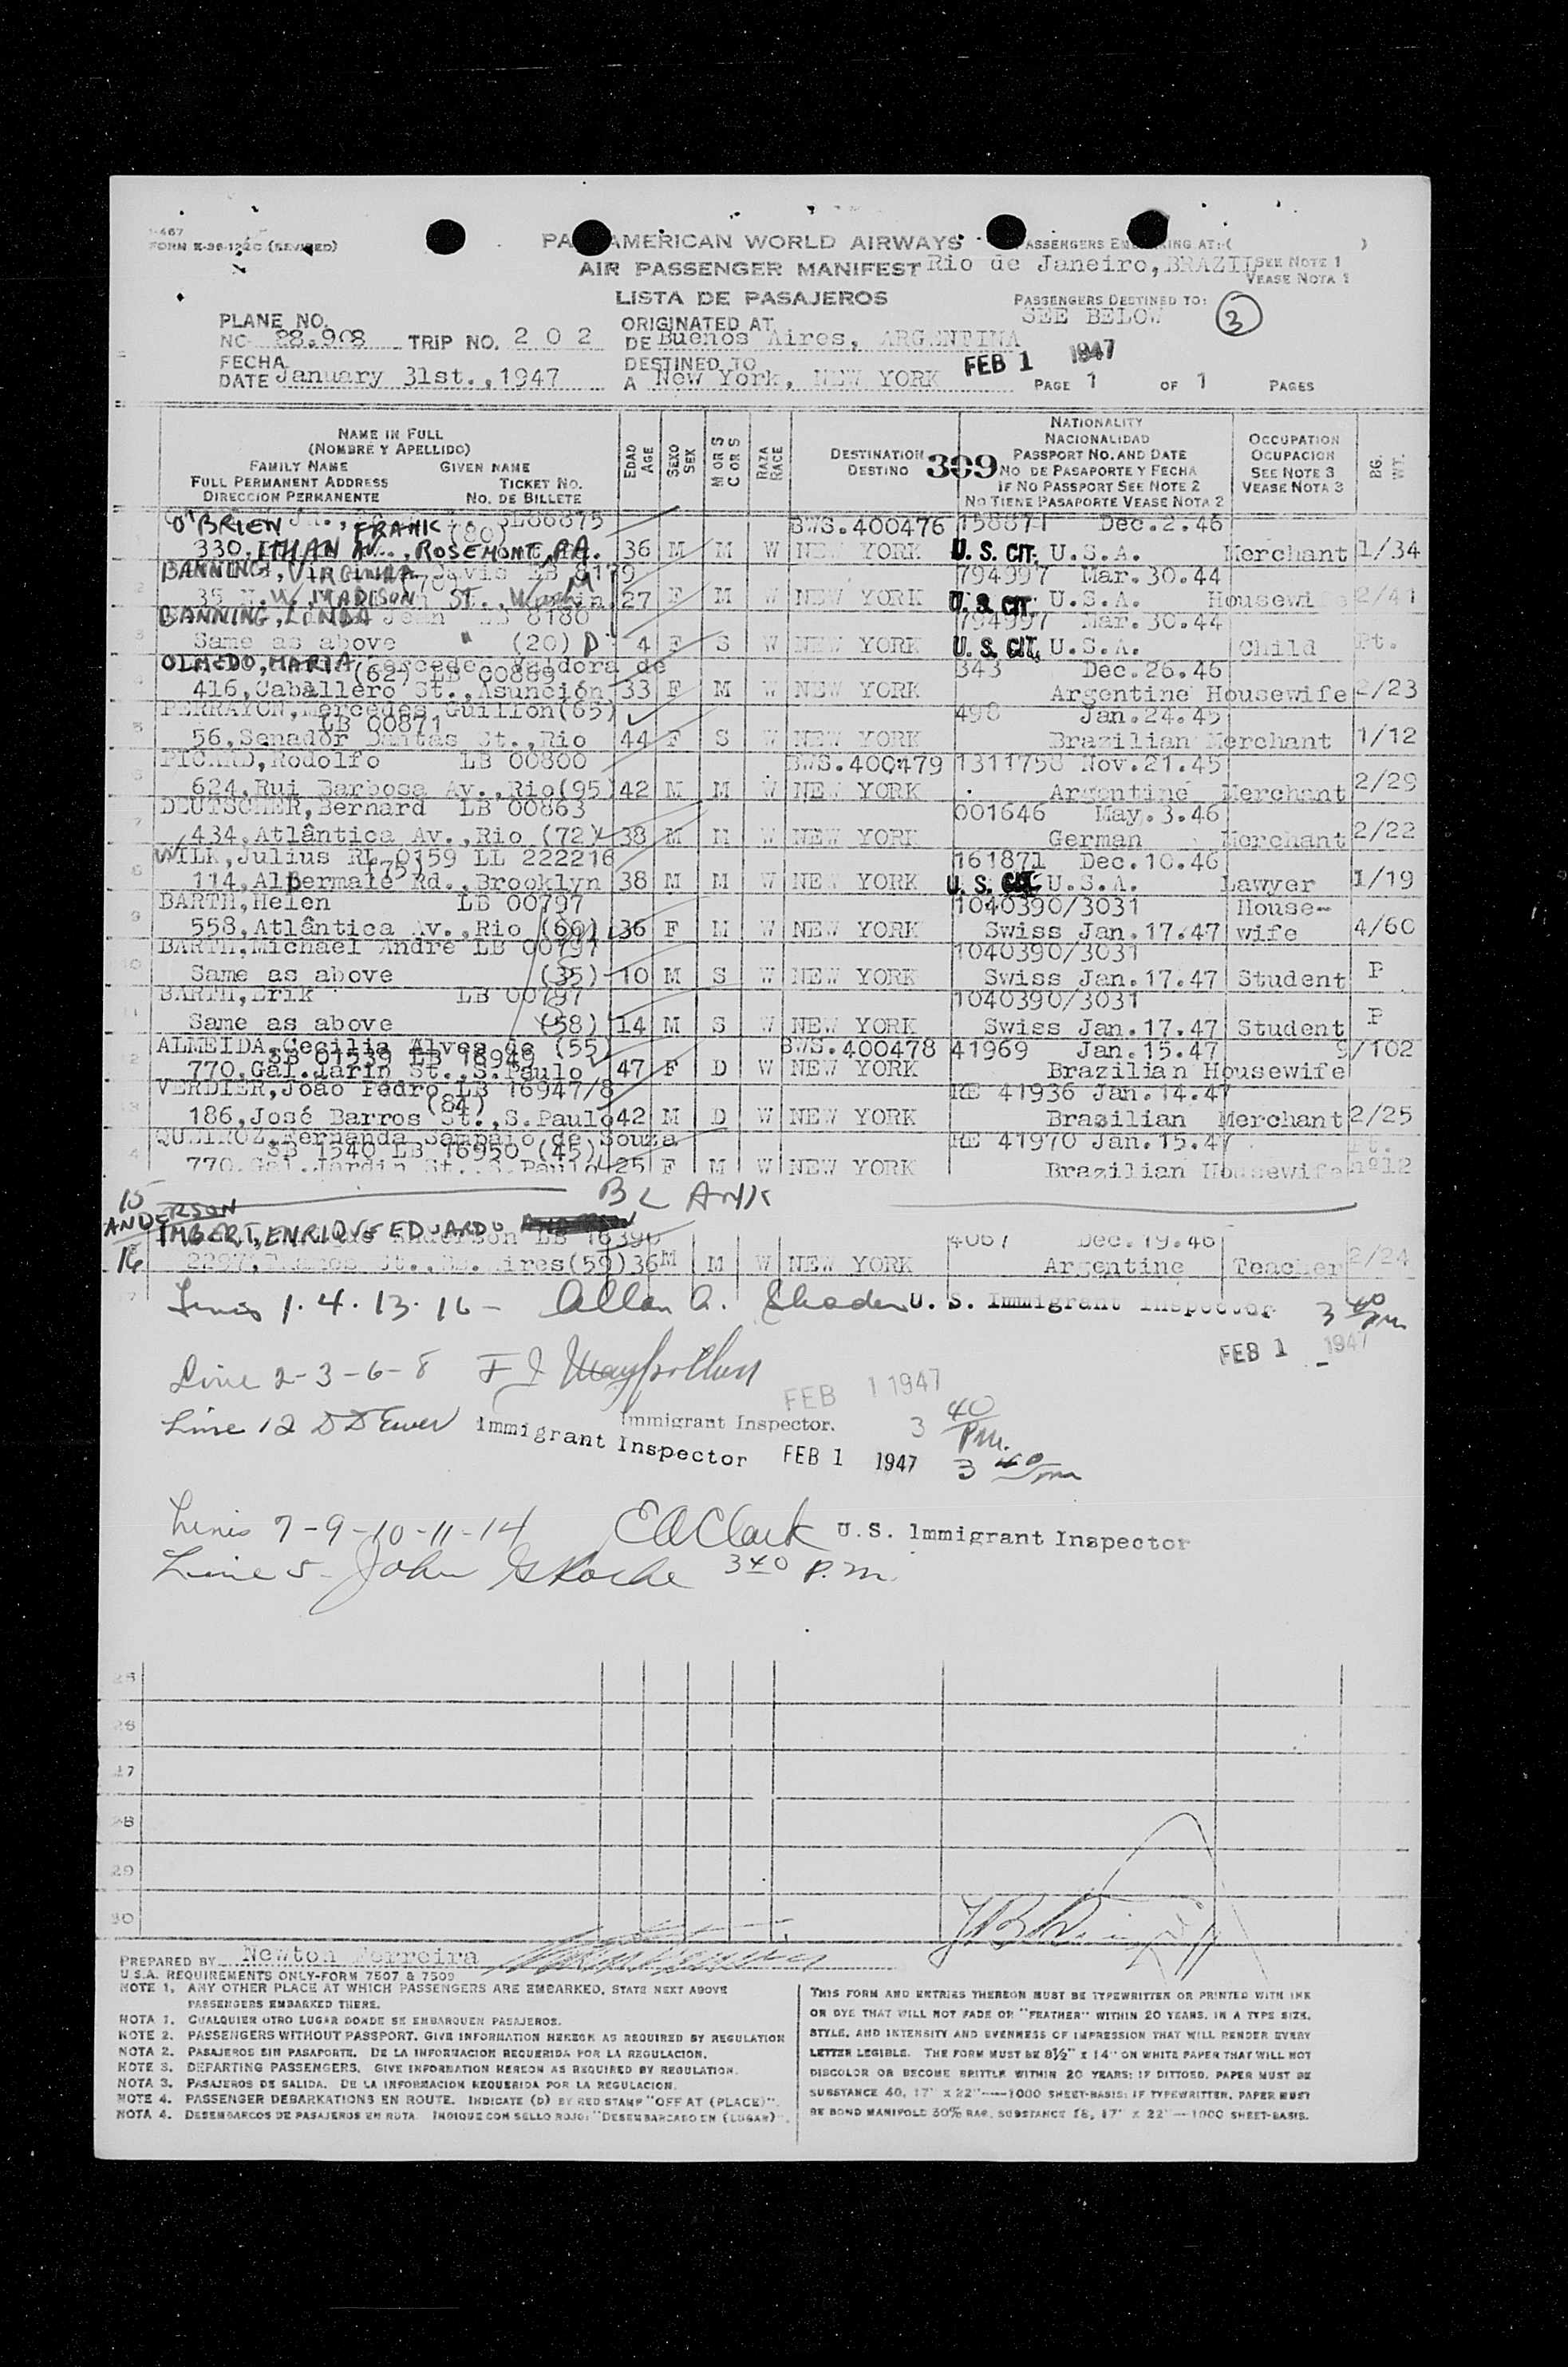 I-467
FORM K-36-122C (REVISED)
PAN AMERICAN WORLD AIRWAYS
PASSENGERS EMBARKING AT:( )
AIR PASSENGER MANIFEST Rio de Janeiro, BRAZIL SEE NOTE 1
VEASE NOTA 1
LISTA DE PASAJEROS
PASSENGERS DESTINED TO:
SEE BELOW 3
PLANE NO.
NC- 88.908 TRIP NO. 2 0 2
ORIGINATED AT
DE Buenos Aires, ARGENTINA
FECHA
DATE January 31st.,1947
DESTINED TO
A New York, NEW YORK
FEB 1 1947
PAGE 1 OF 1 PAGES
NAME IN FULL
(NOMBRE Y APELLIDO)
FAMILY NAME GIVEN NAME
FULL PERMANENT ADDRESS TICKET NO.
DIRECCION PERMANENTE NO. DE BILLETE
EDAD AGE
SEXO SEX
M OR S C OR S
RAZA RACE
DESTINATION
DESTINO 309
NATIONALITY
NACIONALIDAD
PASSPORT NO. AND DATE
NO DE PASAPORTE Y FECHA
IF NO PASSPORT SEE NOTE 2
NO TIENE PASAPORTE VEASE NOTA 2
OCCUPATION
OCUPACION
SEE NOTE 3
VEASE NOTA 3
BG. WT.
O'BRIEN, FRANK (80) BWS.400476 158871 Dec.2.46
330, ITHAN AV., ROSEMONT, PA. 36 M M W NEW YORK U.S. CIT. U.S.A. Merchant 1/34
BANNING, VIRGINIA Davis LB 8179 794997 Mar.30.44
35 W. MADISON ST., 27 F M W NEW YORK U.S. CIT. U.S.A. Housewife 2/41
BANNING, LINDA Jean LB 8180 794997 Mar.30.44
Same as above (20) 4 F S W NEW YORK U.S. CIT. U.S.A. Child Pt.
OLMEDO, MARIA de
(62) LB 00869 343 Dec.26.46
416,Caballero St.,Asunción 33 F M W NEW YORK Argentine Housewife 2/23
FERRAYON,Mercedes Guillon(65)
LB 00871 498 Jan.24.45
56,Senador Dantas St.,Rio 44 F S W NEW YORK Brazilian Merchant 1/12
PICARD,Rodolfo LB 00800 BWS.400479 1311758 Nov.21.45
624,Rui Barbosa Av.,Rio(95) 42 M M W NEW YORK Argentine Merchant 2/29
DEUTSCHER,Bernard LB 00863 001646 May.3.46
434,Atlântica Av.,Rio (72) 38 M M W NEW YORK German Merchant 2/22
WILK,Julius RL 0159 LL 222216 161871 Dec.10.46
(75)
114,Albermale Rd.,Brooklyn 38 M M W NEW YORK U.S. CIT. U.S.A. Lawyer 1/19
BARTH,Helen LB 00797 1040390/3031 House-
558,Atlântica Av.,Rio (60) 36 F M W NEW YORK Swiss Jan.17.47 wife 4/60
BARTH,Michael André LB 00797 1040390/3031
Same as above (35) 10 M S W NEW YORK Swiss Jan.17.47 Student P
BARTH,Erik LB 00797 1040390/3031
Same as above (58) 14 M S W NEW YORK Swiss Jan.17.47 Student P
ALMEIDA,Cecilia Alves de (55) BWS.400478 41969 Jan.15.47 9/102
SB 01539 LB 16949
770,Gal.Jarin St.,S.Paulo 47 F D W NEW YORK Brazilian Housewife
VERDIER,João Pedro LB 16947/8 RE 41936 Jan.14.47
(84)
186,José Barros St.,S.Paulo 42 M D W NEW YORK Brasilian Merchant 2/25
QUEIROZ,Fernanda Sampaio de Souza RE 41970 Jan.15.47
SB 1540 LB 16950 (45)
770.Gal.Jardin St.,S.Paulo 25 F M W NEW YORK Brazilian Housewife
15 BLANK
ANDERSON
IMBERT, ENRIQUE EDUARDO Anderson LB 16396 4067 Dec.19.46
16 (59) 36 M M W NEW YORK Argentine Teacher 2/24
Lines 1. 4. 13. 16 - Allan A. U.S. Immigrant Inspector 3 40 pm
FEB 1 1947
Line 2-3-6-8 F J
FEB 1 1947
Immigrant Inspector. 3 40 Pm.
Line 12 D D Ewer Immigrant Inspector FEB 1 1947 3 40 pm
Lines 7-9-10-11-14 E A Clark U.S. Immigrant Inspector
Line 5- John 3 40 P.m.
25
26
27
28
29
30
PREPARED BY Newton Ferreira
U S.A. REQUIREMENTS ONLY-FORM 7507 & 7509
NOTE 1. ANY OTHER PLACE AT WHICH PASSENGERS ARE EMBARKED, STATE NEXT ABOVE
PASSENGERS EMBARKED THERE.
NOTA 1. CUALQUIER OTRO LUGAR DONDE SE EMBARQUEN PASAJEROS.
NOTE 2. PASSENGERS WITHOUT PASSPORT. GIVE INFORMATION HEREON AS REQUIRED BY REGULATION
NOTA 2. PASAJEROS SIN PASAPORTE. DE LA INFORMACION REQUERIDA POR LA REGULACION.
NOTE 3. DEPARTING PASSENGERS. GIVE INFORMATION HEREON AS REQUIRED BY REGULATION.
NOTA 3. PASAJEROS DE SALIDA. DE LA INFORMACION REQUERIDA POR LA REGULACION.
NOTE 4. PASSENGER DEBARKATIONS EN ROUTE. INDICATE (D) BY RED STAMP "OFF AT (PLACE)".
NOTA 4. DESEMBARCOS DE PASAJEROS EN RUTA. INDIQUE CON SELLO ROJO: "DESEMBARCADO EN (LUGAR)".
THIS FORM AND ENTRIES THEREON MUST BE TYPEWRITTEN OR PRINTED WITH INK
OR DYE THAT WILL NOT FADE OR "FEATHER" WITHIN 20 YEARS, IN A TYPE SIZE,
STYLE, AND INTENSITY AND EVENNESS OF IMPRESSION THAT WILL RENDER EVERY
LETTER LEGIBLE. THE FORM MUST BE 8½" X 14" ON WHITE PAPER THAT WILL NOT
DISCOLOR OR BECOME BRITTLE WITHIN 20 YEARS; IF DITTOED, PAPER MUST BE
SUBSTANCE 40, 17" X 22"—1000 SHEET-BASIS; IF TYPEWRITTEN, PAPER MUST
BE BOND MANIFOLD 50% RAG, SUBSTANCE 18, 17" X 22"—1000 SHEET-BASIS.